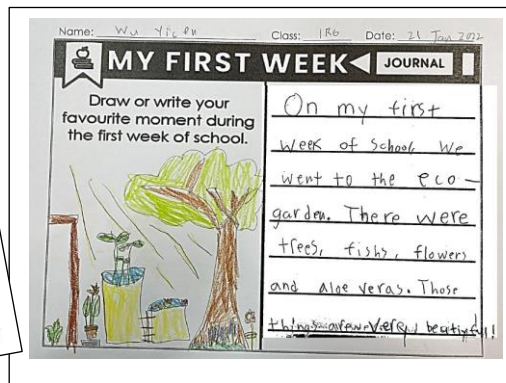 Name: Wu Yicen Class: 1R6 Date: 21 Jan 2022
MY FIRST WEEK JOURNAL
Draw or write your
favourite moment during
the first week of school.
On my first
week of school, we
went to the eco-
garden. There were
trees, fishs, flowers
and aloe veras. Those
things were very beutiful!